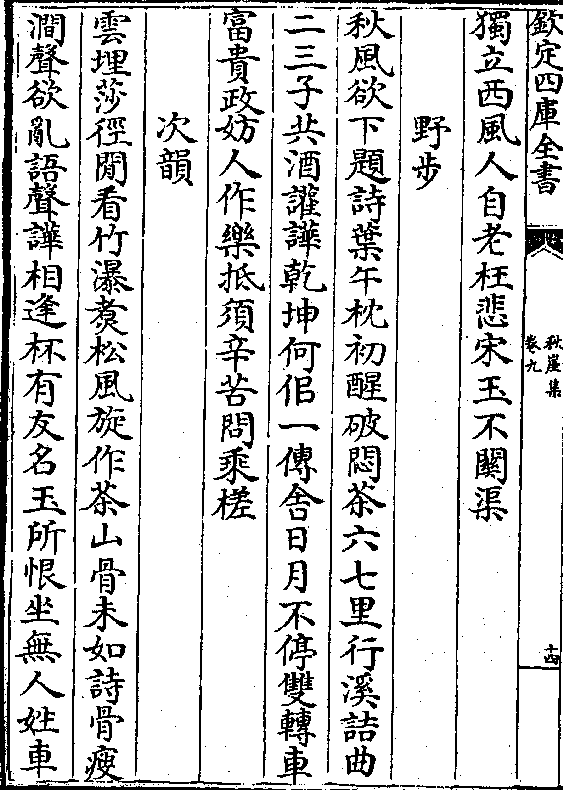 欽定四庫全書
秋崖集
卷九
十四
獨立西風人自老枉悲宋玉不關渠
野步
秋風欲下題詩葉午枕初醒破悶茶六七里行溪詰曲
二三子共酒讙譁乾坤何佀一傳舍日月不停雙轉車
富貴政妨人作樂抵須辛苦問乘槎
次韻
雲埋莎徑閒看竹瀑煑松風旋作茶山骨未如詩骨瘦
澗聲欲亂語聲譁相逢杯有友名玉所恨坐無人姓車